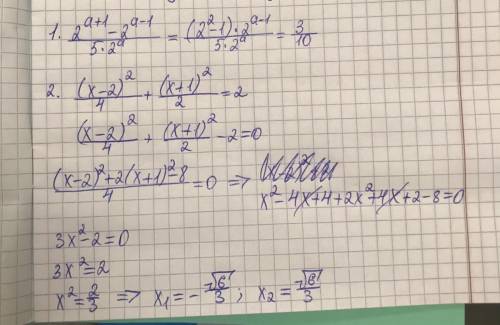 1. \frac{2^{a+1}-2^{a-1}}{5·2^{a}} = \frac{(2^{2}-1)·2^{a-1}}{5·2^{a}} = \frac{3}{10}
2. \frac{(x-2)^{2}}{4} + \frac{(x+1)^{2}}{2} = 2
\frac{(x-2)^{2}}{4} + \frac{(x+1)^{2}}{2} - 2 = 0
\frac{(x-2)^{2}+2(x+1)^{2}-8}{4} = 0 => x^{2}-4x+4+2x^{2}+4x+2-8=0
3x^{2}-2=0
3x^{2}=2
x^{2}=\frac{2}{3} => x_{1}=-\frac{\sqrt{6}}{3}; x_{2}=\frac{\sqrt{6}}{3}